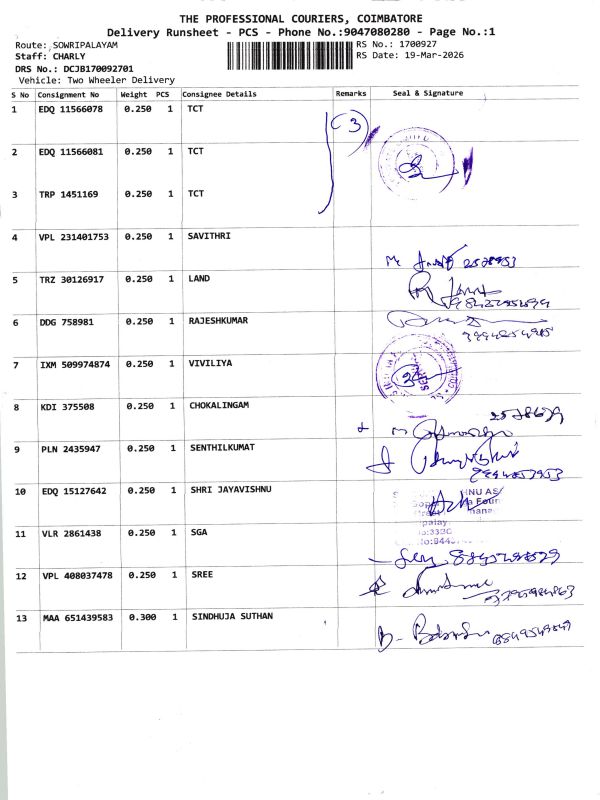 THE PROFESSIONAL COURIERS, COIMBATORE
Delivery Runsheet - PCS - Phone No.:9047080280 - Page No.:1
Route: SOWRIPALAYAM RS No.: 1700927
Staff: CHARLY RS Date: 19-Mar-2026
DRS No.: DCJB170092701
Vehicle: Two Wheeler Delivery
S No Consignment No Weight PCS Consignee Details Remarks Seal & Signature
1 EDQ 11566078 0.250 1 TCT
3
2 EDQ 11566081 0.250 1 TCT
3 TRP 1451169 0.250 1 TCT
4 VPL 231401753 0.250 1 SAVITHRI
5 TRZ 30126917 0.250 1 LAND
6 DDG 758981 0.250 1 RAJESHKUMAR
7 IXM 509974874 0.250 1 VIVILIYA
8 KDI 375508 0.250 1 CHOKALINGAM
9 PLN 2435947 0.250 1 SENTHILKUMAT
10 EDQ 15127642 0.250 1 SHRI JAYAVISHNU
11 VLR 2861438 0.250 1 SGA
12 VPL 408037478 0.250 1 SREE
13 MAA 651439583 0.300 1 SINDHUJA SUTHAN